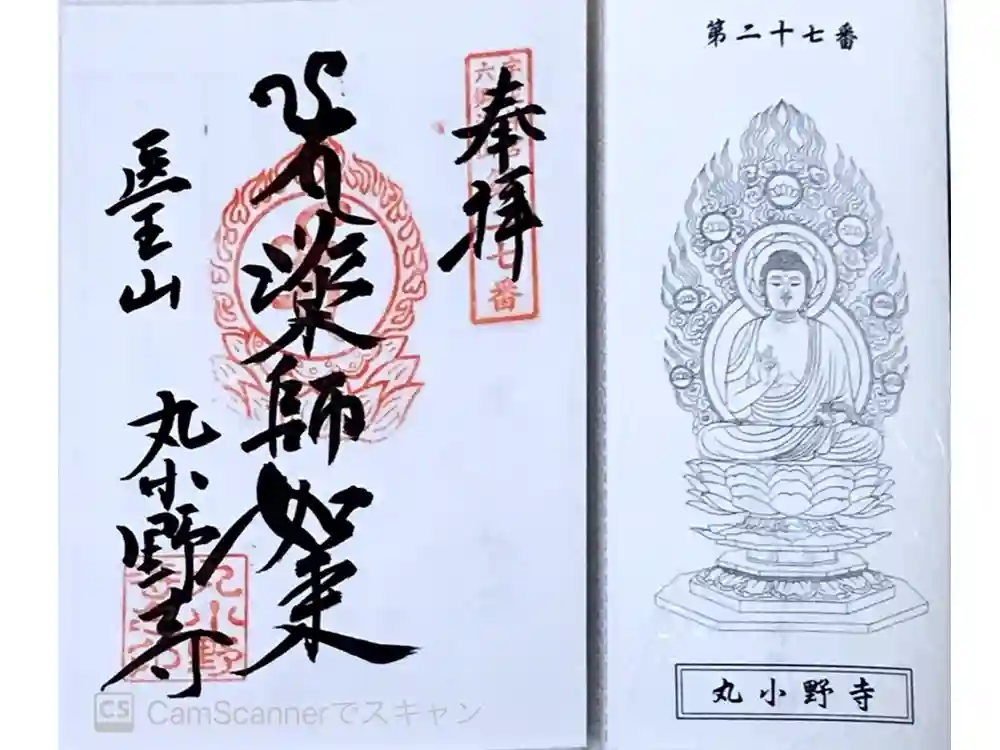 奉拝
薬師如来
醫王山
丸小野寺
六
七番
丸小野
CamScannerでスキャン
第二十七番
丸小野寺